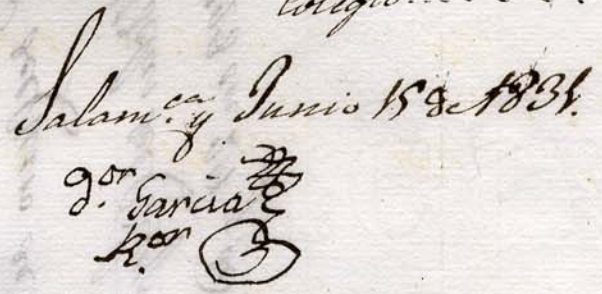 Salam.ca y Junio 15 de 1831.
D.or Garcia
R.or